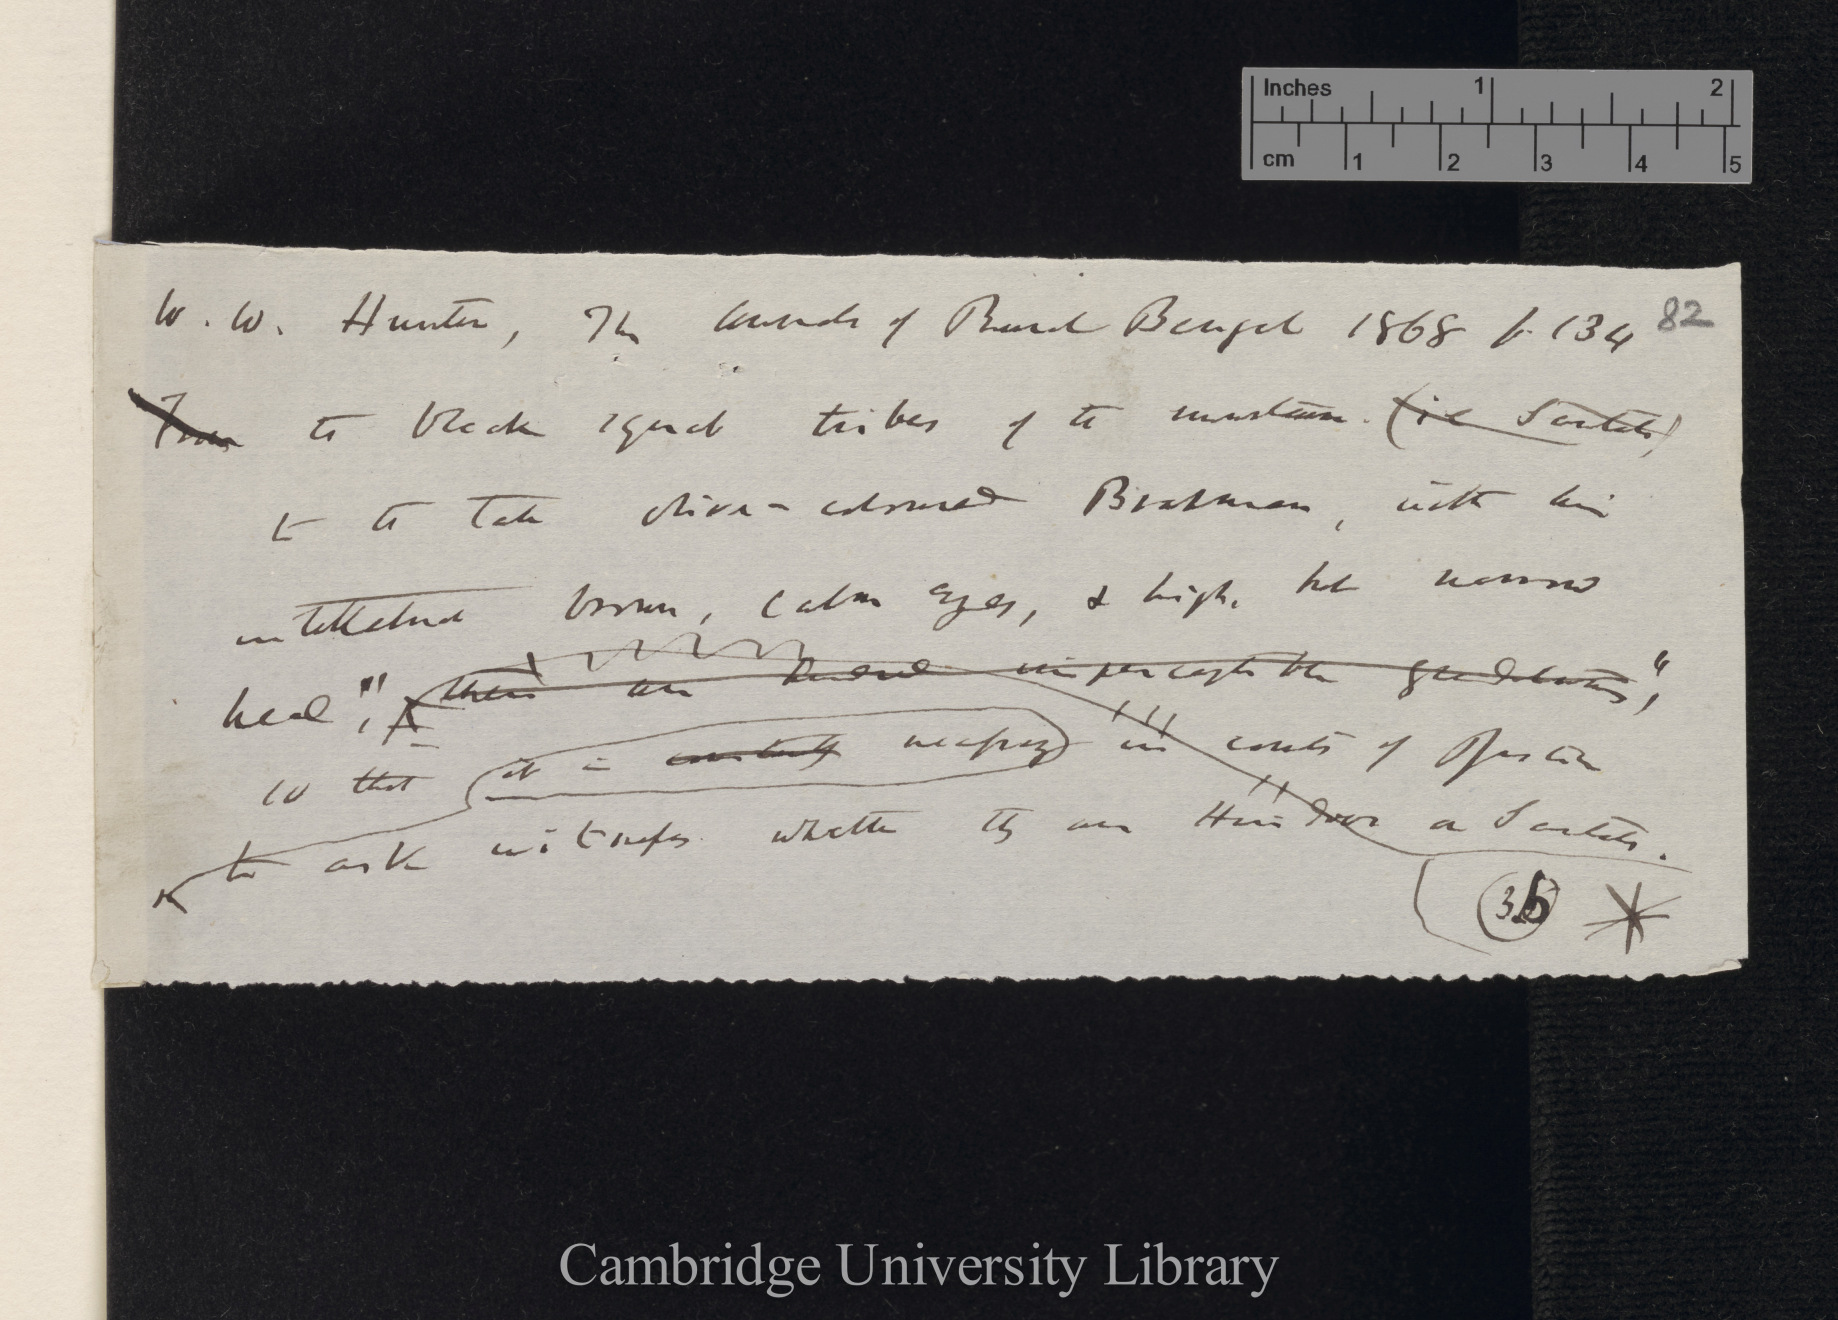 Inches 1 2
cm 1 2 3 4 5
W. W. Hunter, The Annals of Rural Bengal 1868 p. 134 82
From the black squat tribes of the mountain. (ie Santals)
to the tall olive-coloured Brahman, with his
intellectual brow, calm eyes, & high, but narrow
head", there are hundred imperceptible gradations",
so that it is constantly necessary in courts of Justice
to ask witnesses whether they are Hindoos or Santals.
Cambridge University Library